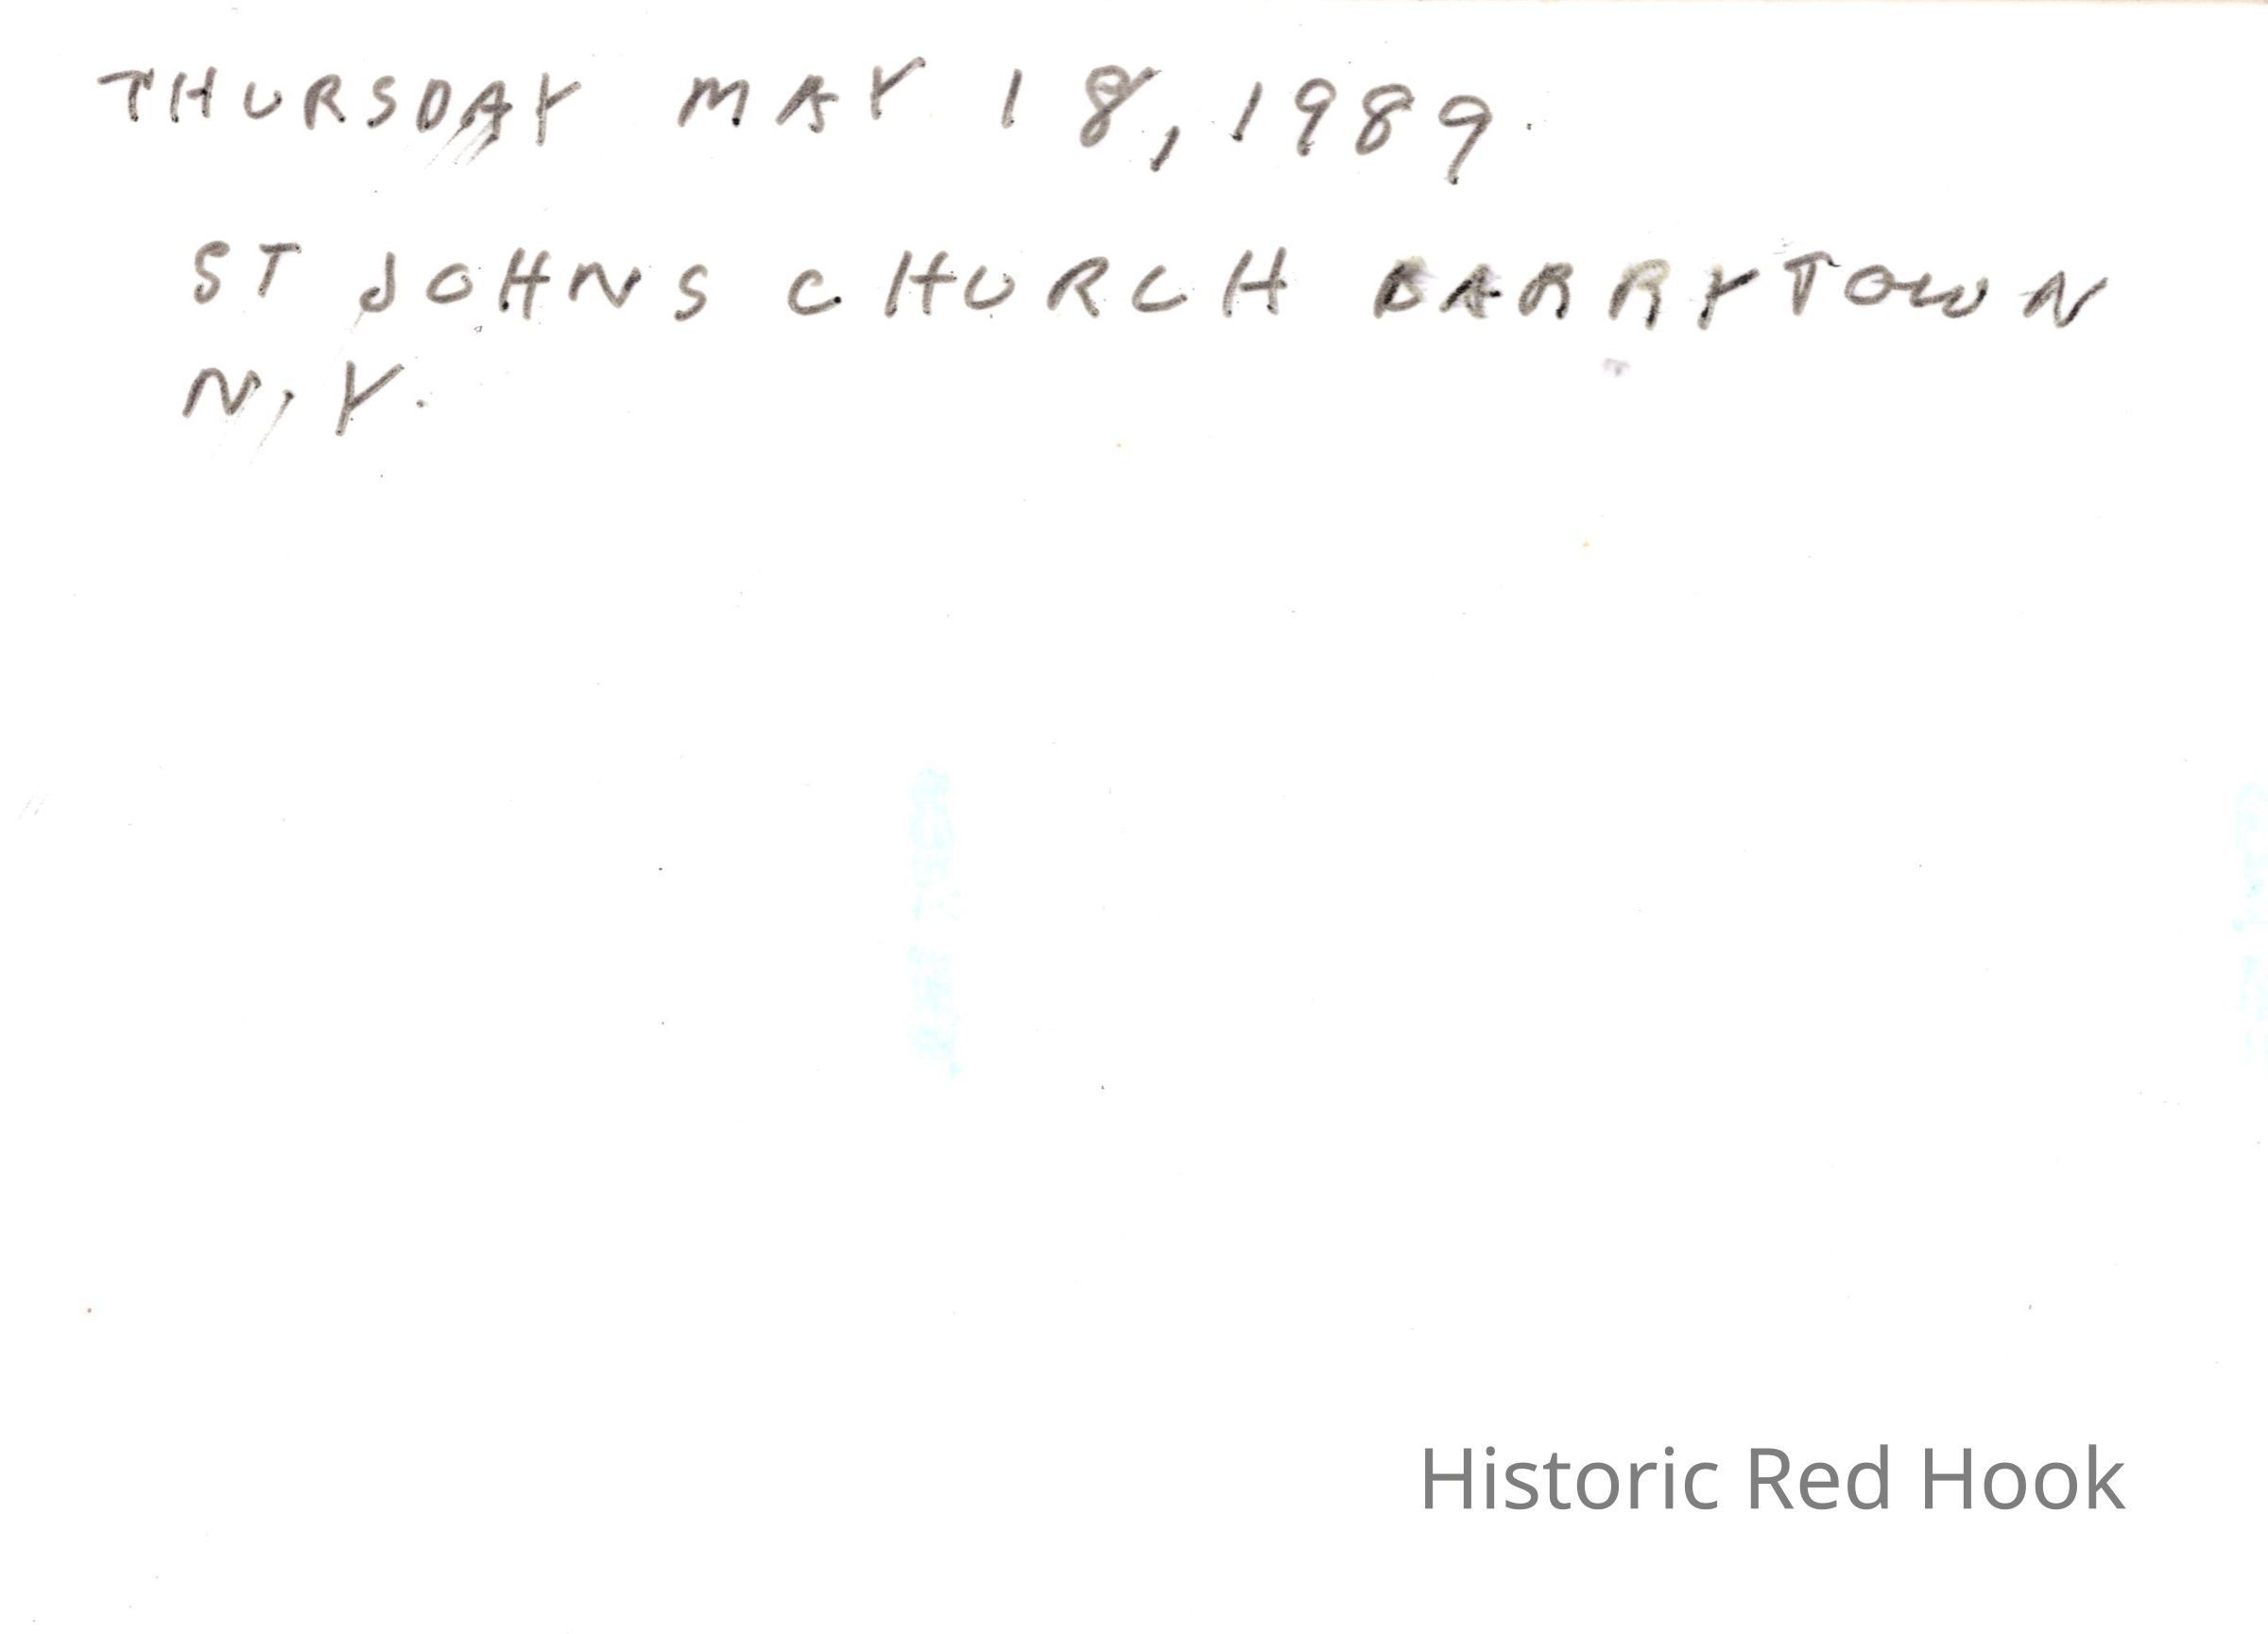 THURSDAY MAY 18, 1989.
ST JOHNS CHURCH BARRYTOWN
N.Y.
Historic Red Hook